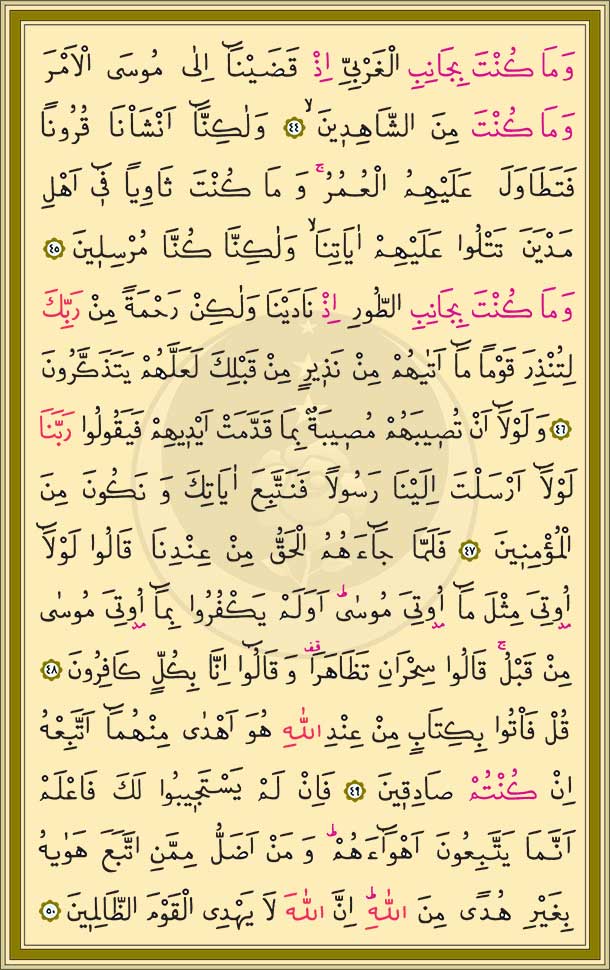 وَمَا كُنْتَ بِجَانِبِ الْغَرْبِيِّ اِذْ قَضَيْنَٓا اِلٰى مُوسَى الْاَمْرَ
وَمَا كُنْتَ مِنَ الشَّاهِد۪ينَۙ ﴿٤٤﴾ وَلٰكِنَّٓا اَنْشَأْنَا قُرُوناً
فَتَطَاوَلَ عَلَيْهِمُ الْعُمُرُۚ وَ مَا كُنْتَ ثَاوِياً ف۪ٓي اَهْلِ
مَدْيَنَ تَتْلُوا عَلَيْهِمْ اٰيَاتِنَاۙ وَلٰكِنَّا كُنَّا مُرْسِل۪ينَ ﴿٤٥﴾
وَمَا كُنْتَ بِجَانِبِ الطُّورِ اِذْ نَادَيْنَا وَلٰكِنْ رَحْمَةً مِنْ رَبِّكَ
لِتُنْذِرَ قَوْماً مَٓا اَتٰيهُمْ مِنْ نَذ۪يرٍ مِنْ قَبْلِكَ لَعَلَّهُمْ يَتَذَكَّرُونَ
﴿٤٦﴾ وَ لَوْلَٓا اَنْ تُص۪يبَهُمْ مُص۪يبَةٌ بِمَا قَدَّمَتْ اَيْد۪يهِمْ فَيَقُولُوا رَبَّنَا
لَوْلَٓا اَرْسَلْتَ اِلَيْنَا رَسُولاً فَنَتَّبِعَ اٰيَاتِكَ وَ نَكُونَ مِنَ
الْمُؤْمِن۪ينَ ﴿٤٧﴾ فَلَمَّا جَٓاءَهُمُ الْحَقُّ مِنْ عِنْدِنَا قَالُوا لَوْلَٓا
اُو۫تِيَ مِثْلَ مَٓا اُو۫تِيَ مُوسٰىۜ اَوَلَمْ يَكْفُرُوا بِمَٓا اُو۫تِيَ مُوسٰى
مِنْ قَبْلُۚ قَالُوا سِحْرَانِ تَظَاهَرَا۠ وَ قَالُٓوا اِنَّا بِكُلٍّ كَافِرُونَ ﴿٤٨﴾
قُلْ فَأْتُوا بِكِتَابٍ مِنْ عِنْدِ اللّٰهِ هُوَ اَهْدٰى مِنْهُمَٓا اَتَّبِعْهُ
اِنْ كُنْتُمْ صَادِق۪ينَ ﴿٤٩﴾ فَاِنْ لَمْ يَسْتَج۪يبُوا لَكَ فَاعْلَمْ
اَنَّمَا يَتَّبِعُونَ اَهْوَٓاءَهُمْۜ وَ مَنْ اَضَلُّ مِمَّنِ اتَّبَعَ هَوٰيهُ
بِغَيْرِ هُدًى مِنَ اللّٰهِۜ اِنَّ اللّٰهَ لَا يَهْدِي الْقَوْمَ الظَّالِم۪ينَ ﴿٥٠﴾